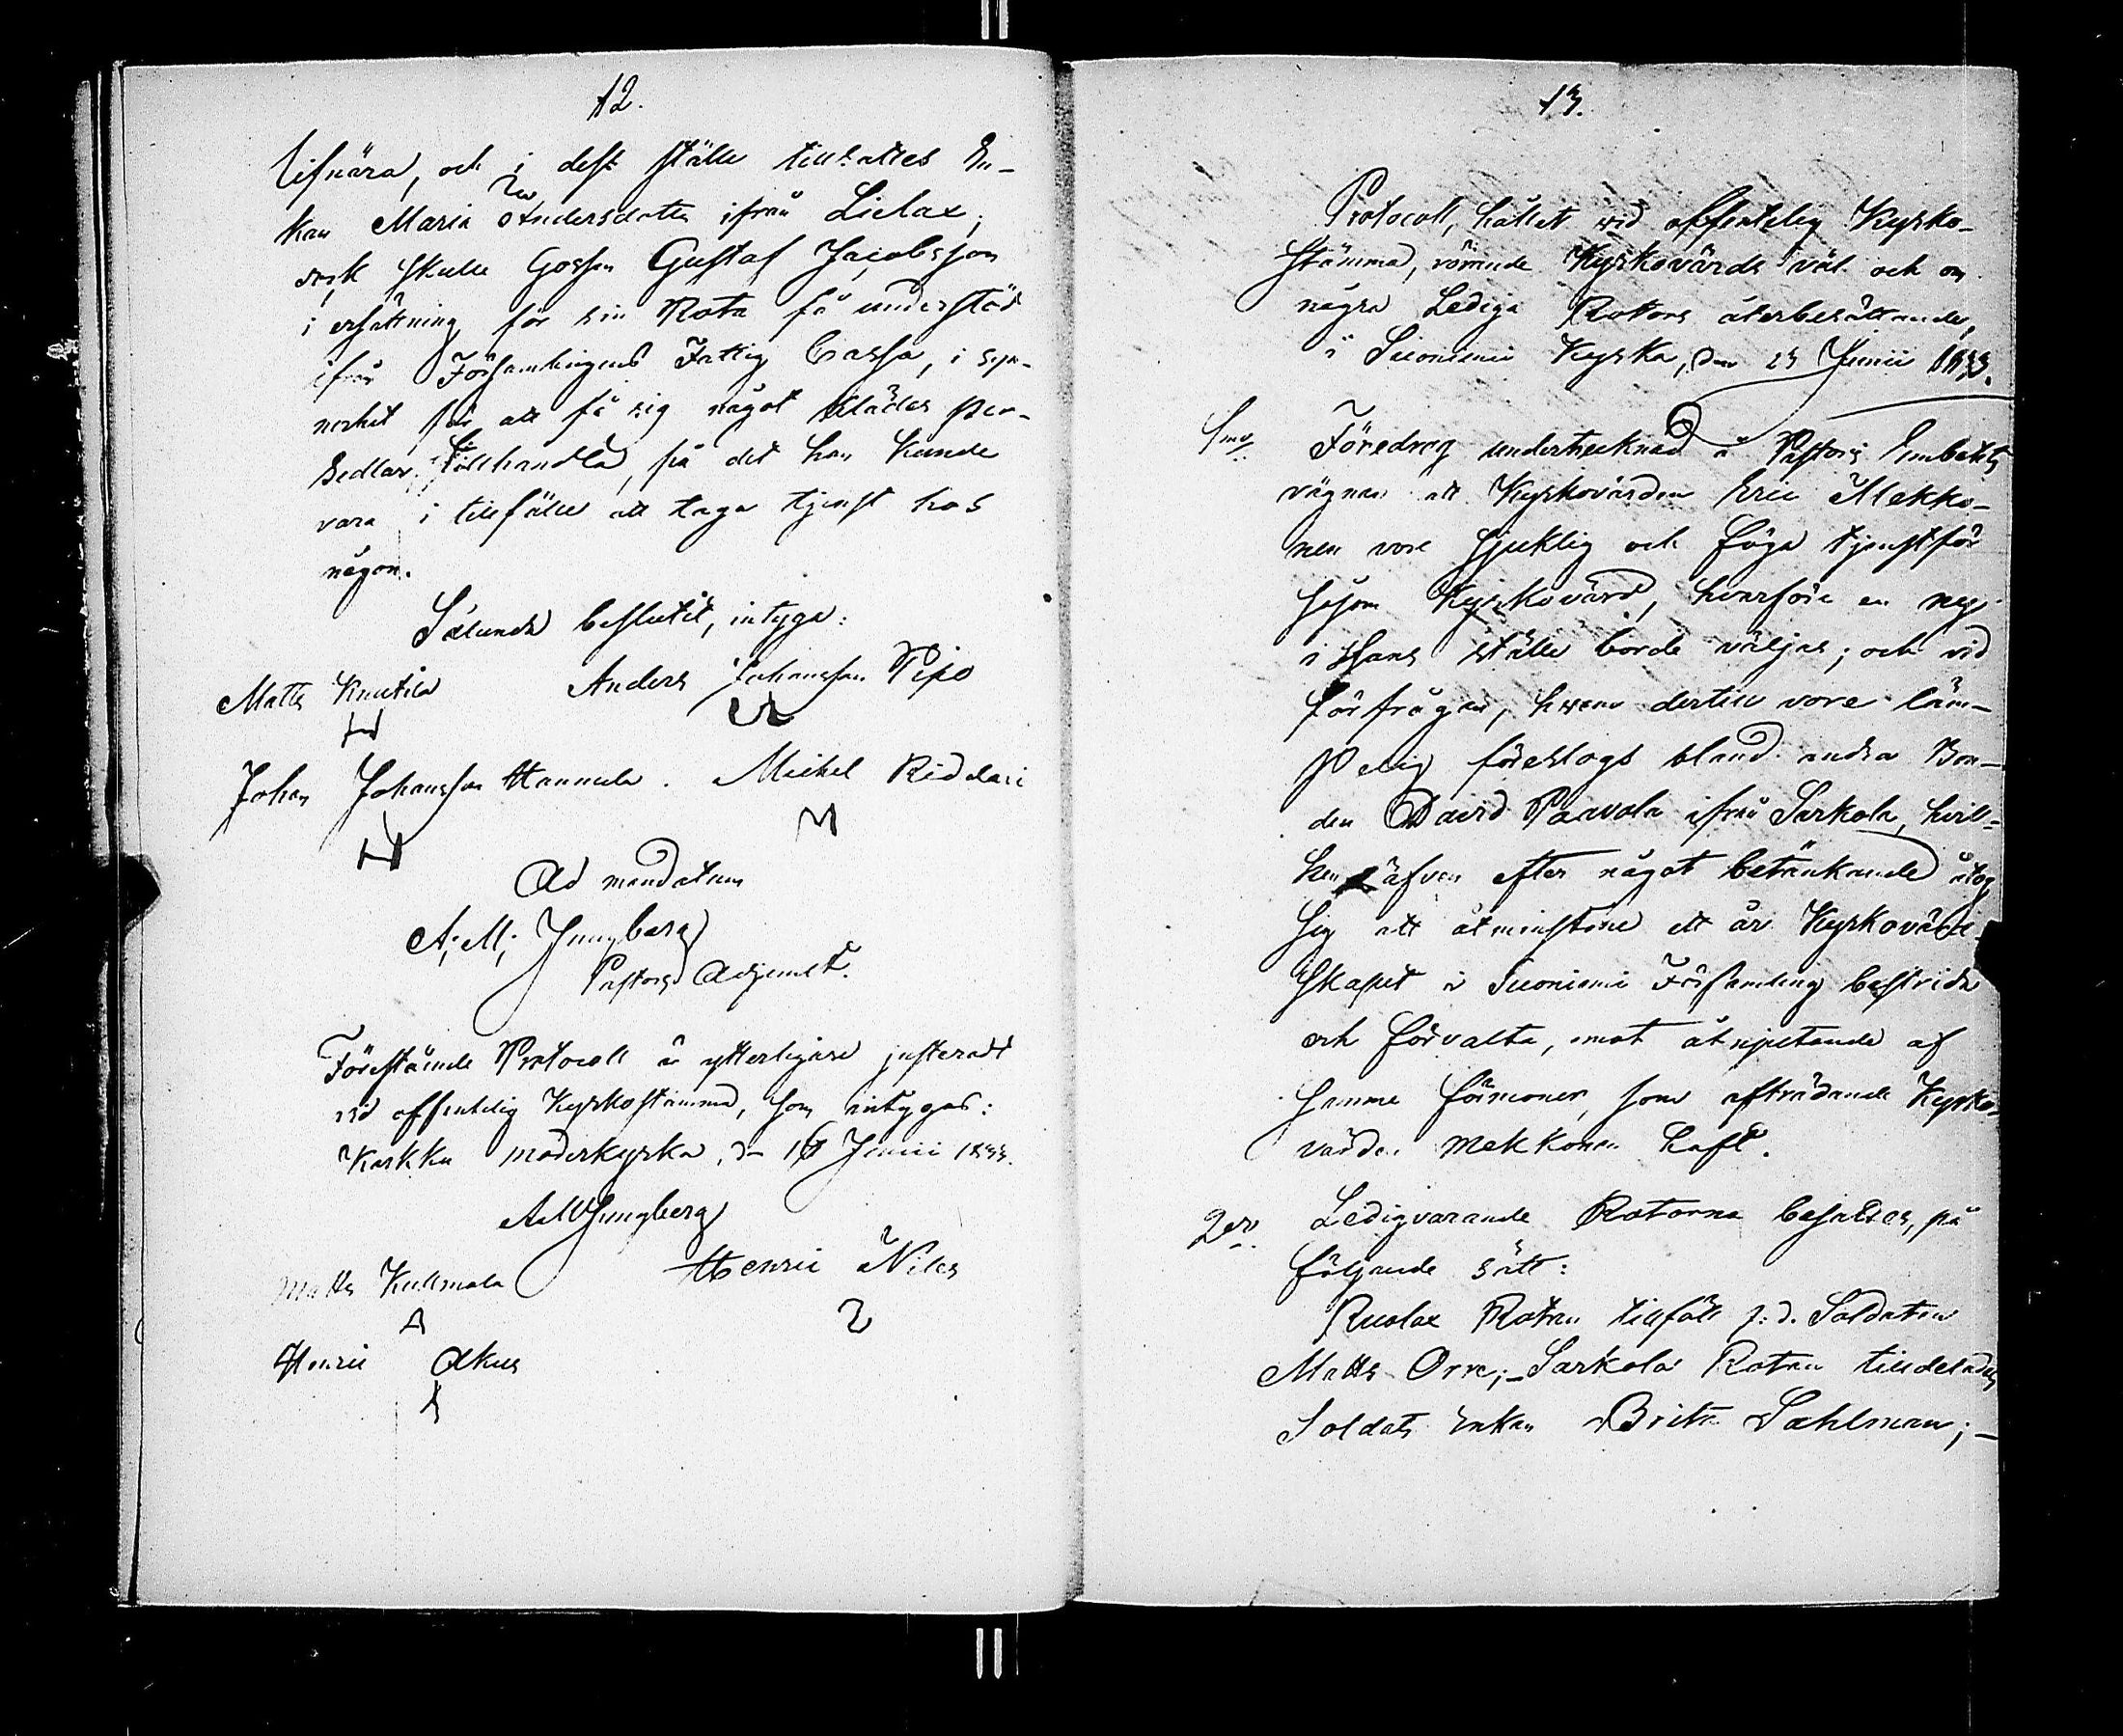 12.
lifnära, och i dess ställe tillsattes En-
kan Maria Andersdotter ifrån Lielax;
och skulle Gossen Gustaf Jacobsson
i ersättning för sin Rota få understöd
ifrån Församlingens Fattig Cassa, i syn-
nerhet för att få sig något kläder per-
sedlar tillhandla, på det han kunde
vara i tillfälle att taga tjenst hos
någon.
Sålunda beslutit, intyga:
Matts Knutila Anders Johansson Pipo
Johan Johansson Hannula. Michel Riddari
Ad mandatum
A: M: Ljungberg
Pastors Adjunct.
Förestående Protocoll är ytterligare justeradt
vid offentelig Kyrkostämma, som intygas:
Karkku moderkyrka, den 16 Junii 1833.
AM Ljungberg
Matts Kullmala Henric Niles
Henric Akus
13.
Protocoll, hållet wid offentelig Kyrko-
stämma, rörande Kyrkovärds val och om
några Lediga Rotors återbesättande,
i Suoniemi Kyrka, den 23 Junii 1833.
1mo Föredrog undertecknad å Pastors Embetets
vägnar att Kyrkovärden Eric Mekko-
nen vore sjuklig och föga tjenstför
såsom Kyrkovärd, hvarföre en ny
i Hans ställe borde väljas; och vid
förfrågan, hvem dertill vore läm-
pelig föreslogs bland andra Bon-
den David Paavola ifrån Sarkola, hvil-
ken äfven efter något betänkande åtog
sig att åtminstone ett år Kyrkovärd-
skapet i Suoniemi Församling bestrida
och förvalta, mot åtnjutande af
samma förmoner, som afträdande Kyrko-
värden Mekkonen haft.
2do. Ledigvarande Rotorna besattes, på
följande sätt:
Kuolax Rotan tillföll f: d. Soldaten
Matts Orre; - Sarkola Rotan tilldelades
Soldats Enkan Brita Sahlman; -